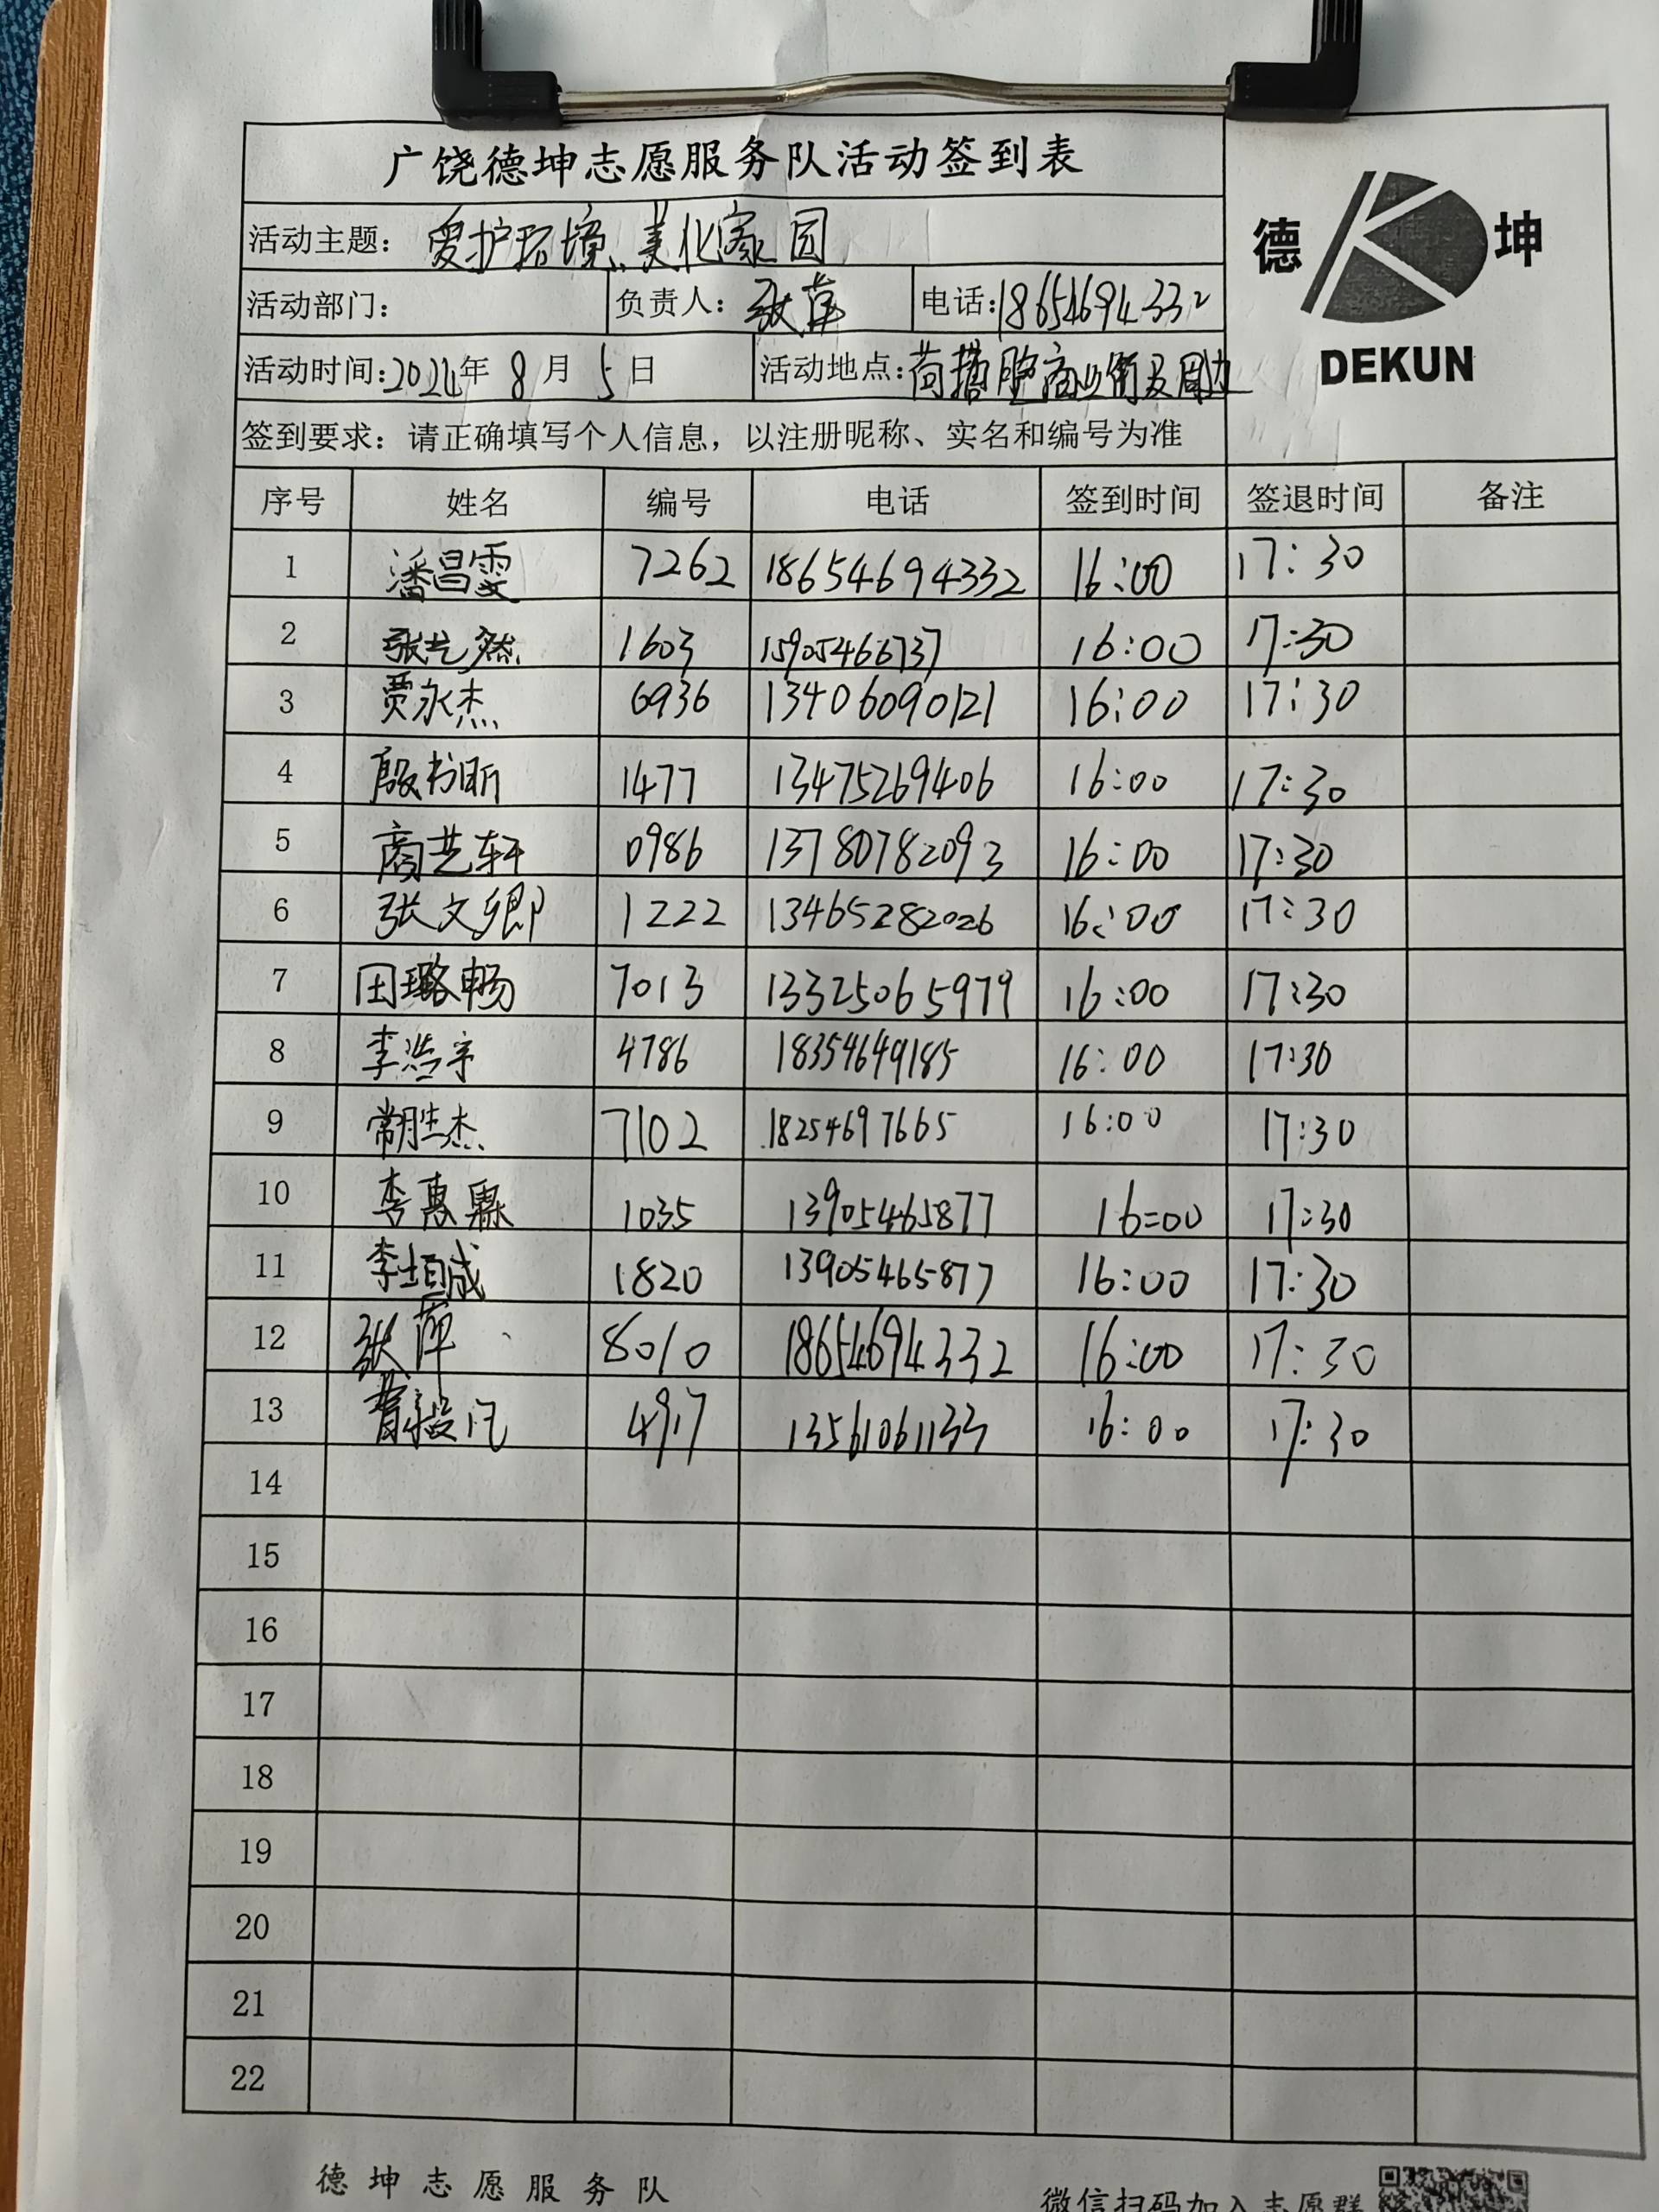 广饶德坤志愿服务队活动签到表
德 坤
DEKUN
活动主题：爱护环境、美化家园
活动部门： 负责人：张萍 电话：18654694332
活动时间：2024年 8 月 5 日 活动地点：商业街及周边
签到要求：请正确填写个人信息，以注册昵称、实名和编号为准
序号 姓名 编号 电话 签到时间 签退时间 备注
1 潘昌雯 7262 18654694332 16:00 17:30
2 张艺然 1603 15905466737 16:00 17:30
3 贾永杰 6936 13406090121 16:00 17:30
4 殷书昕 1477 13475269406 16:00 17:30
5 商艺轩 0986 13780782093 16:00 17:30
6 张文卿 1222 13465282026 16:00 17:30
7 田璐畅 7013 13325065979 16:00 17:30
8 李浩宇 4786 18354649185 16:00 17:30
9 常胜杰 7102 18254697665 16:00 17:30
10 李惠霖 1035 13905465877 16:00 17:30
11 李垣成 1820 13905465877 16:00 17:30
12 张萍 8010 18654694332 16:00 17:30
13 4917 13561061133 16:00 17:30
14
15
16
17
18
19
20
21
22
德坤志愿服务队
微信扫码加入志愿群